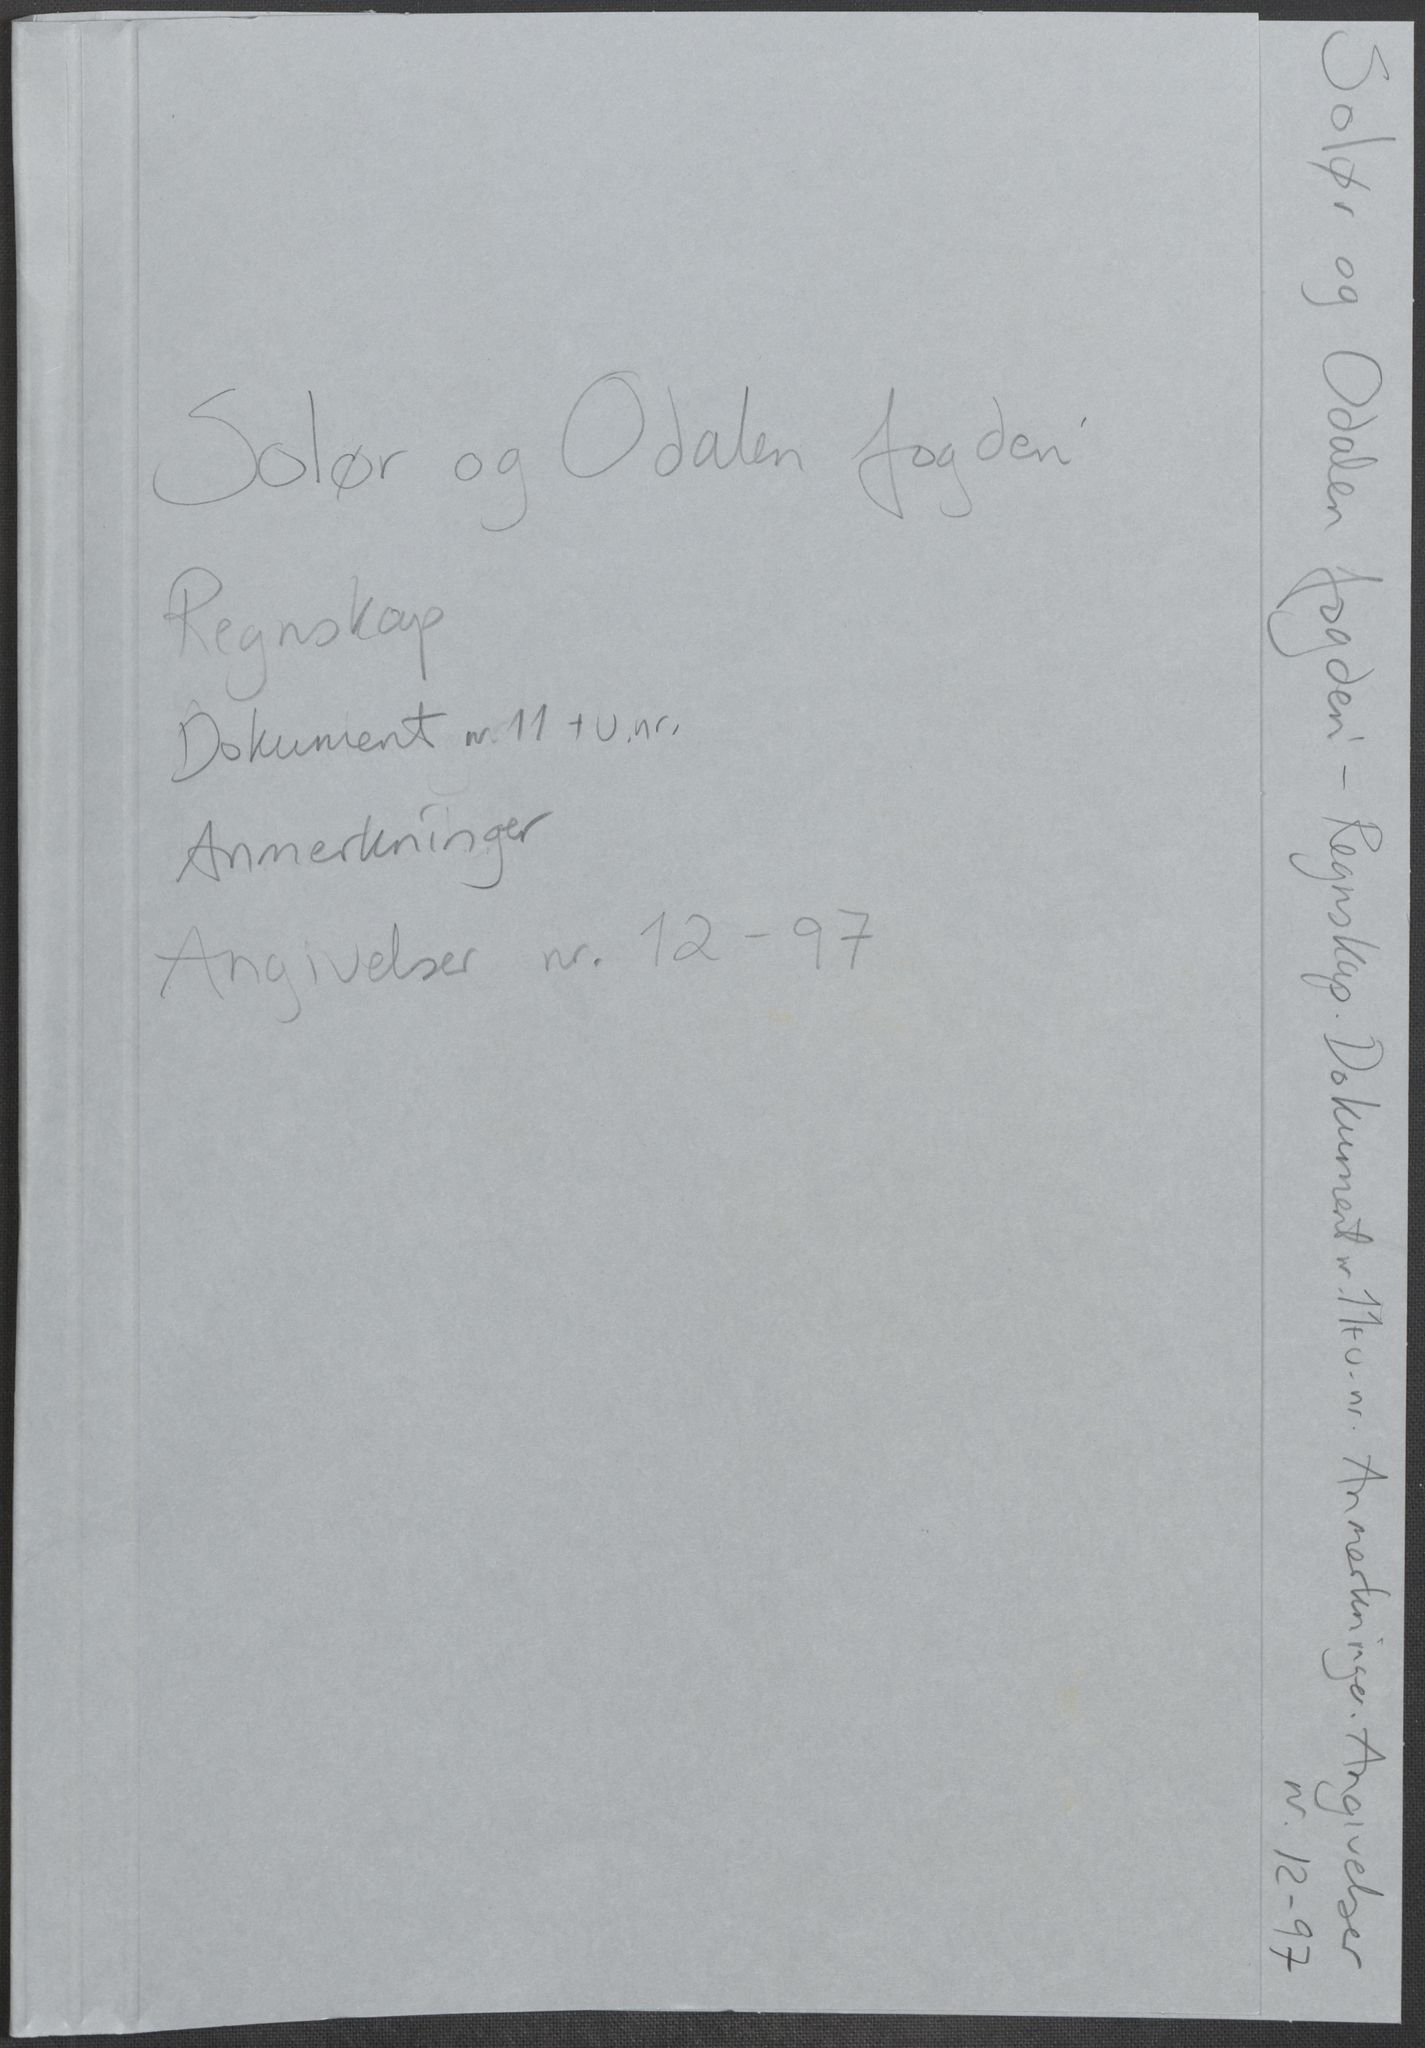 Solør og Odalen fogderi
Regnskap
Dokument nr. 11 + u.nr.
Anmerkninger
Angivelser nr. 12-97
Solør og Odalen fogderi - Regnskap. Dokument nr. 11+u.nr. Anmerkninger. Angivelser
nr. 12-97